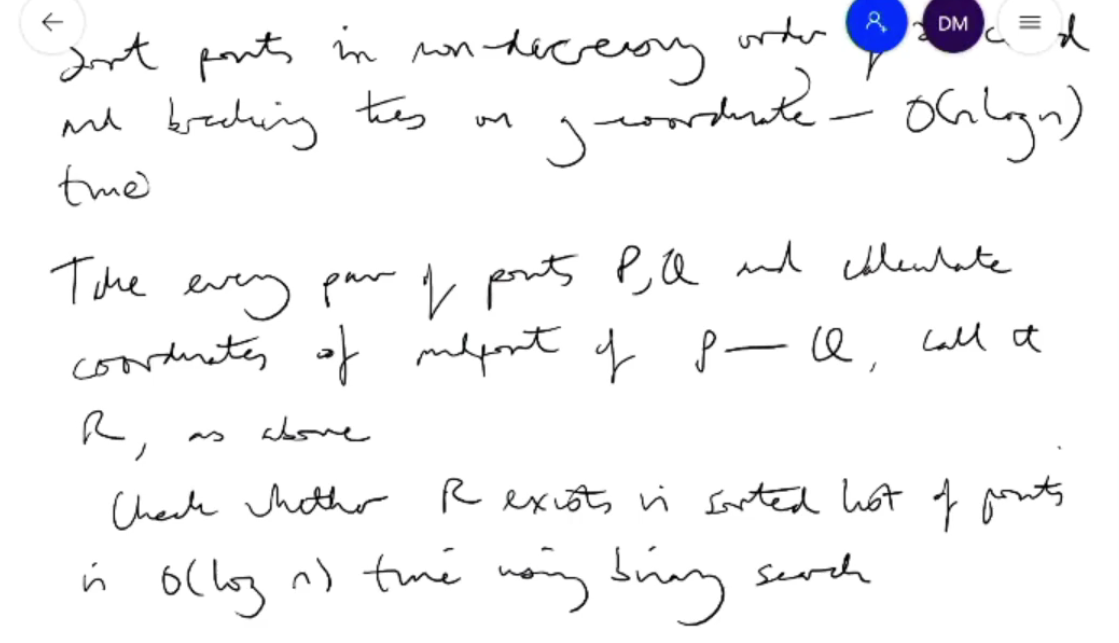 Sort points in non-decreasing order
and breaking ties on y-coordinate - O(n log n)
time
Take every pair of points P, Q and calculate
coordinates of midpoint of P — Q, call it
R, as above
Check whether R exists in sorted list of points
in O(log n) time using binary search
DM